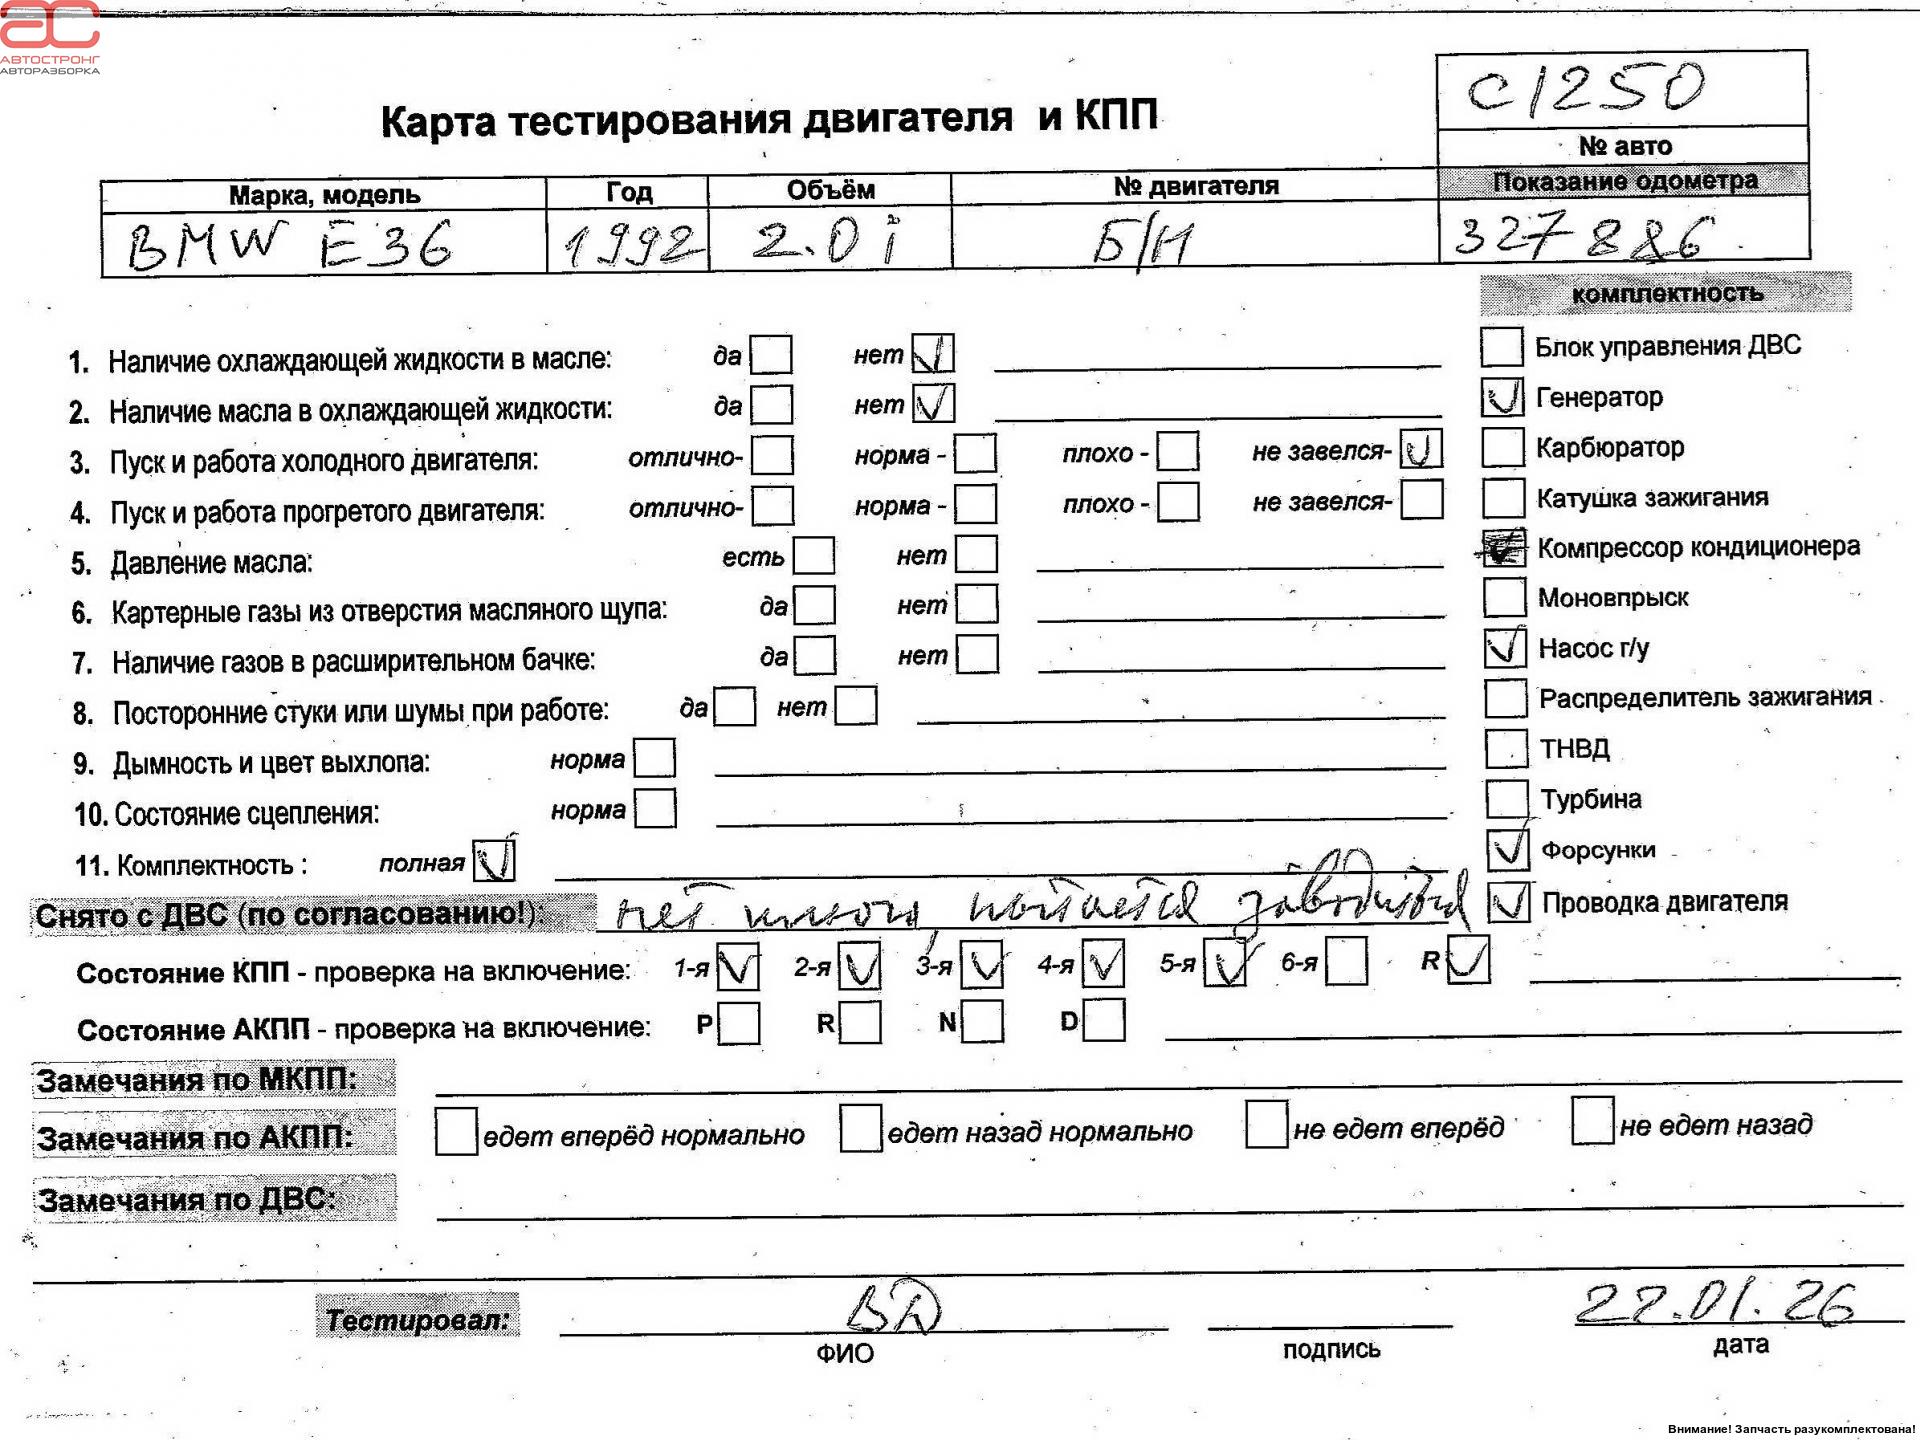 ас
АВТОСТРОНГ
АВТОРАЗБОРКА
С1250
№ авто
Карта тестирования двигателя и КПП
Марка, модель Год Объём № двигателя Показание одометра
BMW E36 1992 2.0 i Б/Н 327886
комплектность
1. Наличие охлаждающей жидкости в масле: да нет
2. Наличие масла в охлаждающей жидкости: да нет
3. Пуск и работа холодного двигателя: отлично- норма - плохо - не завелся-
4. Пуск и работа прогретого двигателя: отлично- норма - плохо - не завелся-
5. Давление масла: есть нет
6. Картерные газы из отверстия масляного щупа: да нет
7. Наличие газов в расширительном бачке: да нет
8. Посторонние стуки или шумы при работе: да нет
9. Дымность и цвет выхлопа: норма
10. Состояние сцепления: норма
11. Комплектность : полная
Блок управления ДВС
Генератор
Карбюратор
Катушка зажигания
Компрессор кондиционера
Моновпрыск
Насос г/у
Распределитель зажигания
ТНВД
Турбина
Форсунки
Проводка двигателя
Снято с ДВС (по согласованию!): нет пытается заводиться
Состояние КПП - проверка на включение: 1-я 2-я 3-я 4-я 5-я 6-я R
Состояние АКПП - проверка на включение: P R N D
Замечания по МКПП:
Замечания по АКПП: едет вперёд нормально едет назад нормально не едет вперёд не едет назад
Замечания по ДВС:
Тестировал: 22.01.26
ФИО подпись дата
Внимание! Запчасть разукомплектована!